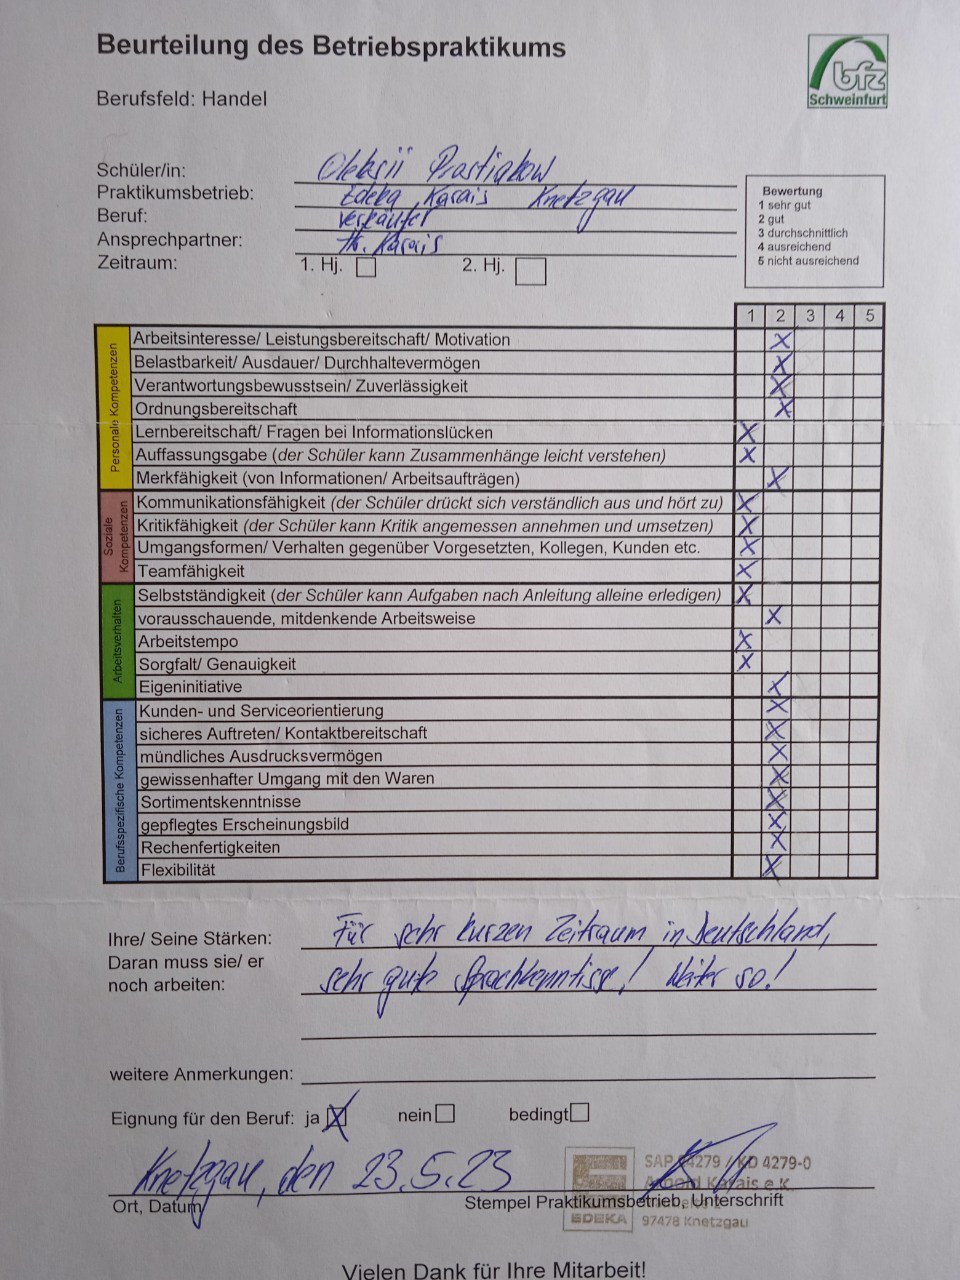 Beurteilung des Betriebspraktikums
bfz
Schweinfurt
Berufsfeld: Handel
Schüler/in: Oleksii Prostiakow
Praktikumsbetrieb: Edeka Karais Knetzgau
Beruf: Verkäufer
Ansprechpartner: Hr. Karais
Zeitraum: 1. Hj. 2. Hj.
Bewertung
1 sehr gut
2 gut
3 durchschnittlich
4 ausreichend
5 nicht ausreichend
1 2 3 4 5
Personale Kompetenzen
Arbeitsinteresse/ Leistungsbereitschaft/ Motivation X
Belastbarkeit/ Ausdauer/ Durchhaltevermögen X
Verantwortungsbewusstsein/ Zuverlässigkeit X
Ordnungsbereitschaft X
Lernbereitschaft/ Fragen bei Informationslücken X
Auffassungsgabe (der Schüler kann Zusammenhänge leicht verstehen) X
Merkfähigkeit (von Informationen/ Arbeitsaufträgen) X
Soziale Kompetenzen
Kommunikationsfähigkeit (der Schüler drückt sich verständlich aus und hört zu) X
Kritikfähigkeit (der Schüler kann Kritik angemessen annehmen und umsetzen) X
Umgangsformen/ Verhalten gegenüber Vorgesetzten, Kollegen, Kunden etc. X
Teamfähigkeit X
Arbeitsverhalten
Selbstständigkeit (der Schüler kann Aufgaben nach Anleitung alleine erledigen) X
vorausschauende, mitdenkende Arbeitsweise X
Arbeitstempo X
Sorgfalt/ Genauigkeit X
Eigeninitiative X
Berufsspezifische Kompetenzen
Kunden- und Serviceorientierung X
sicheres Auftreten/ Kontaktbereitschaft X
mündliches Ausdrucksvermögen X
gewissenhafter Umgang mit den Waren X
Sortimentskenntnisse X
gepflegtes Erscheinungsbild X
Rechenfertigkeiten X
Flexibilität X
Ihre/ Seine Stärken: Für sehr kurzen Zeitraum in Deutschland,
Daran muss sie/ er
noch arbeiten: sehr gute Sprachkenntisse! Weiter so!
weitere Anmerkungen:
Eignung für den Beruf: ja X nein bedingt
Knetzgau, den 23.5.23
SAP 04279 / KD 4279-0
Arnold Karais e.K.
Ort, Datum Stempel Praktikumsbetrieb, Unterschrift
EDEKA 97478 Knetzgau
Vielen Dank für Ihre Mitarbeit!